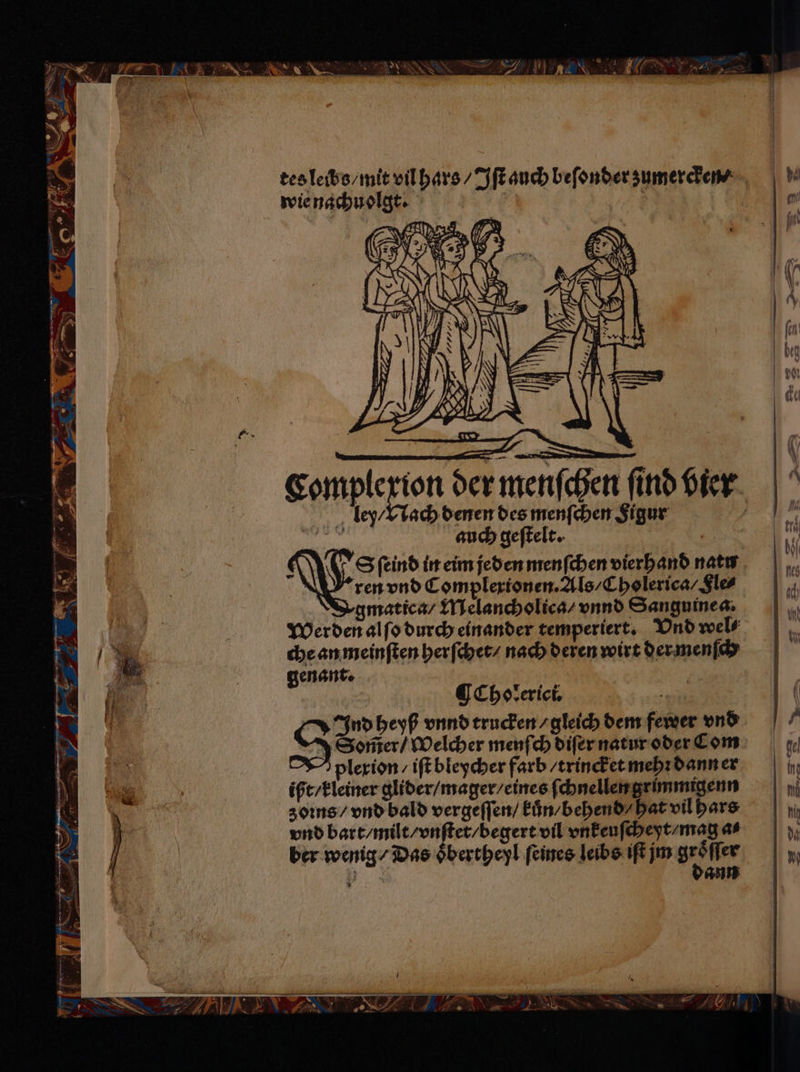 tes leibs/mit vil hars/Iſt auch beſonder zumercken/
wie nachuolgt.
Complexion der menſchen ſind vier
ley/Nach denen des menſchen Figur
auch geſtelt.
ES ſeind in eim jeden menſchen vierhand natu
ren vnd Complexionen. Als/Cholerica/Fle⸗
gmatica/Melancholica/vnnd Sanguinea.
Werden alſo durch einander temperiert. Vnd wel⸗
che an meinſten herſchet/ nach deren wirt der menſch
genant.
¶Cholerici.
SInd heyß vnnd trucken/gleich dem fewer vnd
Som̃er/Welcher menſch diſer natur oder Com
plexion/iſt bleycher farb/trincket mehꝛ dann er
ißt/kleiner glider/mager/eines ſchnellen grimmigenn
zoꝛns/vnd bald vergeſſen/kůn/behend/hat vil hars
vnd bart/milt/vnſtet/begert vil vnkeuſcheyt/mag a⸗
ber wenig/Das oͤbertheyl ſeines leibs iſt jm groͤſſer
dann